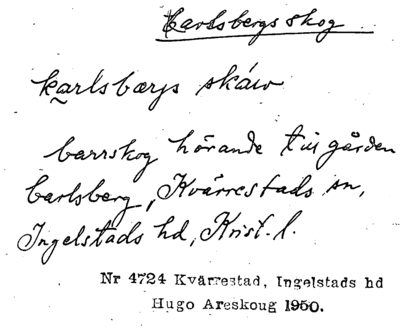 Karlsbergs skog
karlsbærjs skáw
barrskog hörande till gården
Carlsberg, Kvärrestads sn,
Ingelstads hd, Krist. l.
Nr 4724 Kvärrestad, Ingelstads hd
Hugo Areskoug 1950.